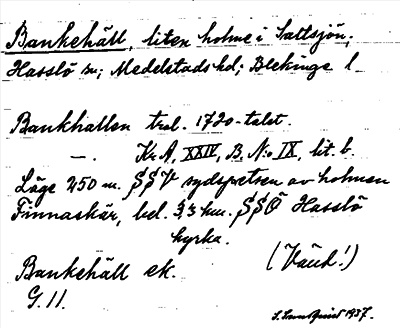 Bankehäll, liten holme i Saltsjön;
Hasslö sn; Medelstads hd; Blekinge l
Bankhallen trol. 1720-talet.
—. Kr A, XXIV, B. N:o IX, lit. b.
Läge 250 m. SSV sydspetsen av holmen
Finnaskär, bel. 3,3 km. SSÖ Hasslö
kyrka.
Bankehäll ek. (Vänd!)
G. 11.
1937.